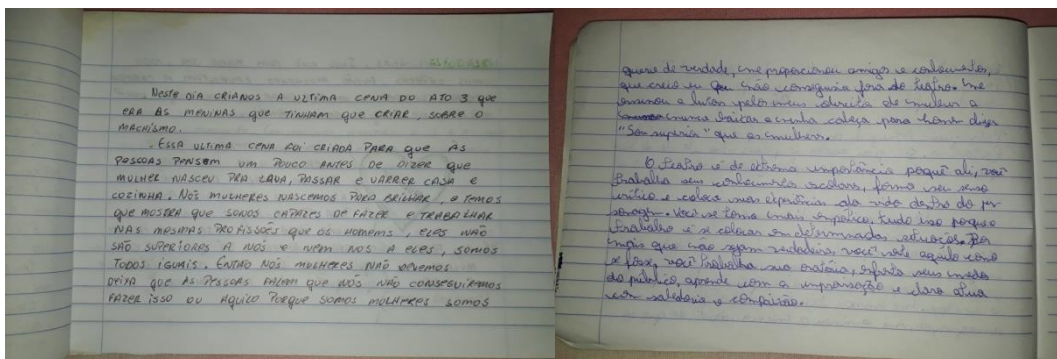 Neste dia criamos a ultima cena do ato 3 que
era as meninas que tinham que criar, sobre o
machismo.
. Essa ultima cena foi criada para que as
pessoas pensem um pouco antes de dizer que
mulher nasceu pra lava, passar e varrer casa e
cozinha. Nós mulheres nascemos para brilhar, e temos
que mostra que somos capazes de fazer e trabalhar
nas mesmas profissões que os homens, eles não
são superiores a nós e nem nos a eles, somos
todos iguais. Então nós mulheres não devemos
deixa que as pessoas falem que nós não conseguiremos
fazer isso ou aquilo porque somos mulheres somos
quere de verdade, me proporcionou amigos e conhecimentos,
que creio eu que não conseguiria fora do teatro. Me
ensinou a lutar pelos meus direitos de mulher a
nunca baixar a minha cabeça para homem dizer
"Sou superior" que as mulheres.
O teatro é de extrema importância porquê ali, você
trabalha seus conhecimentos escolares, forma seu senso
crítico e coloca suas experiências da vida dentro do per
sonagem. Você se torna mais empático, tudo isso porque
trabalho é se colocar em determinadas situações. Por
mais que não sejam verdadeiras, você vive aquilo como
se fosse, você trabalha sua oratória, enfrenta seus medos
do público, aprende com a improvisação e claro atua
com sabedoria e compaixão.